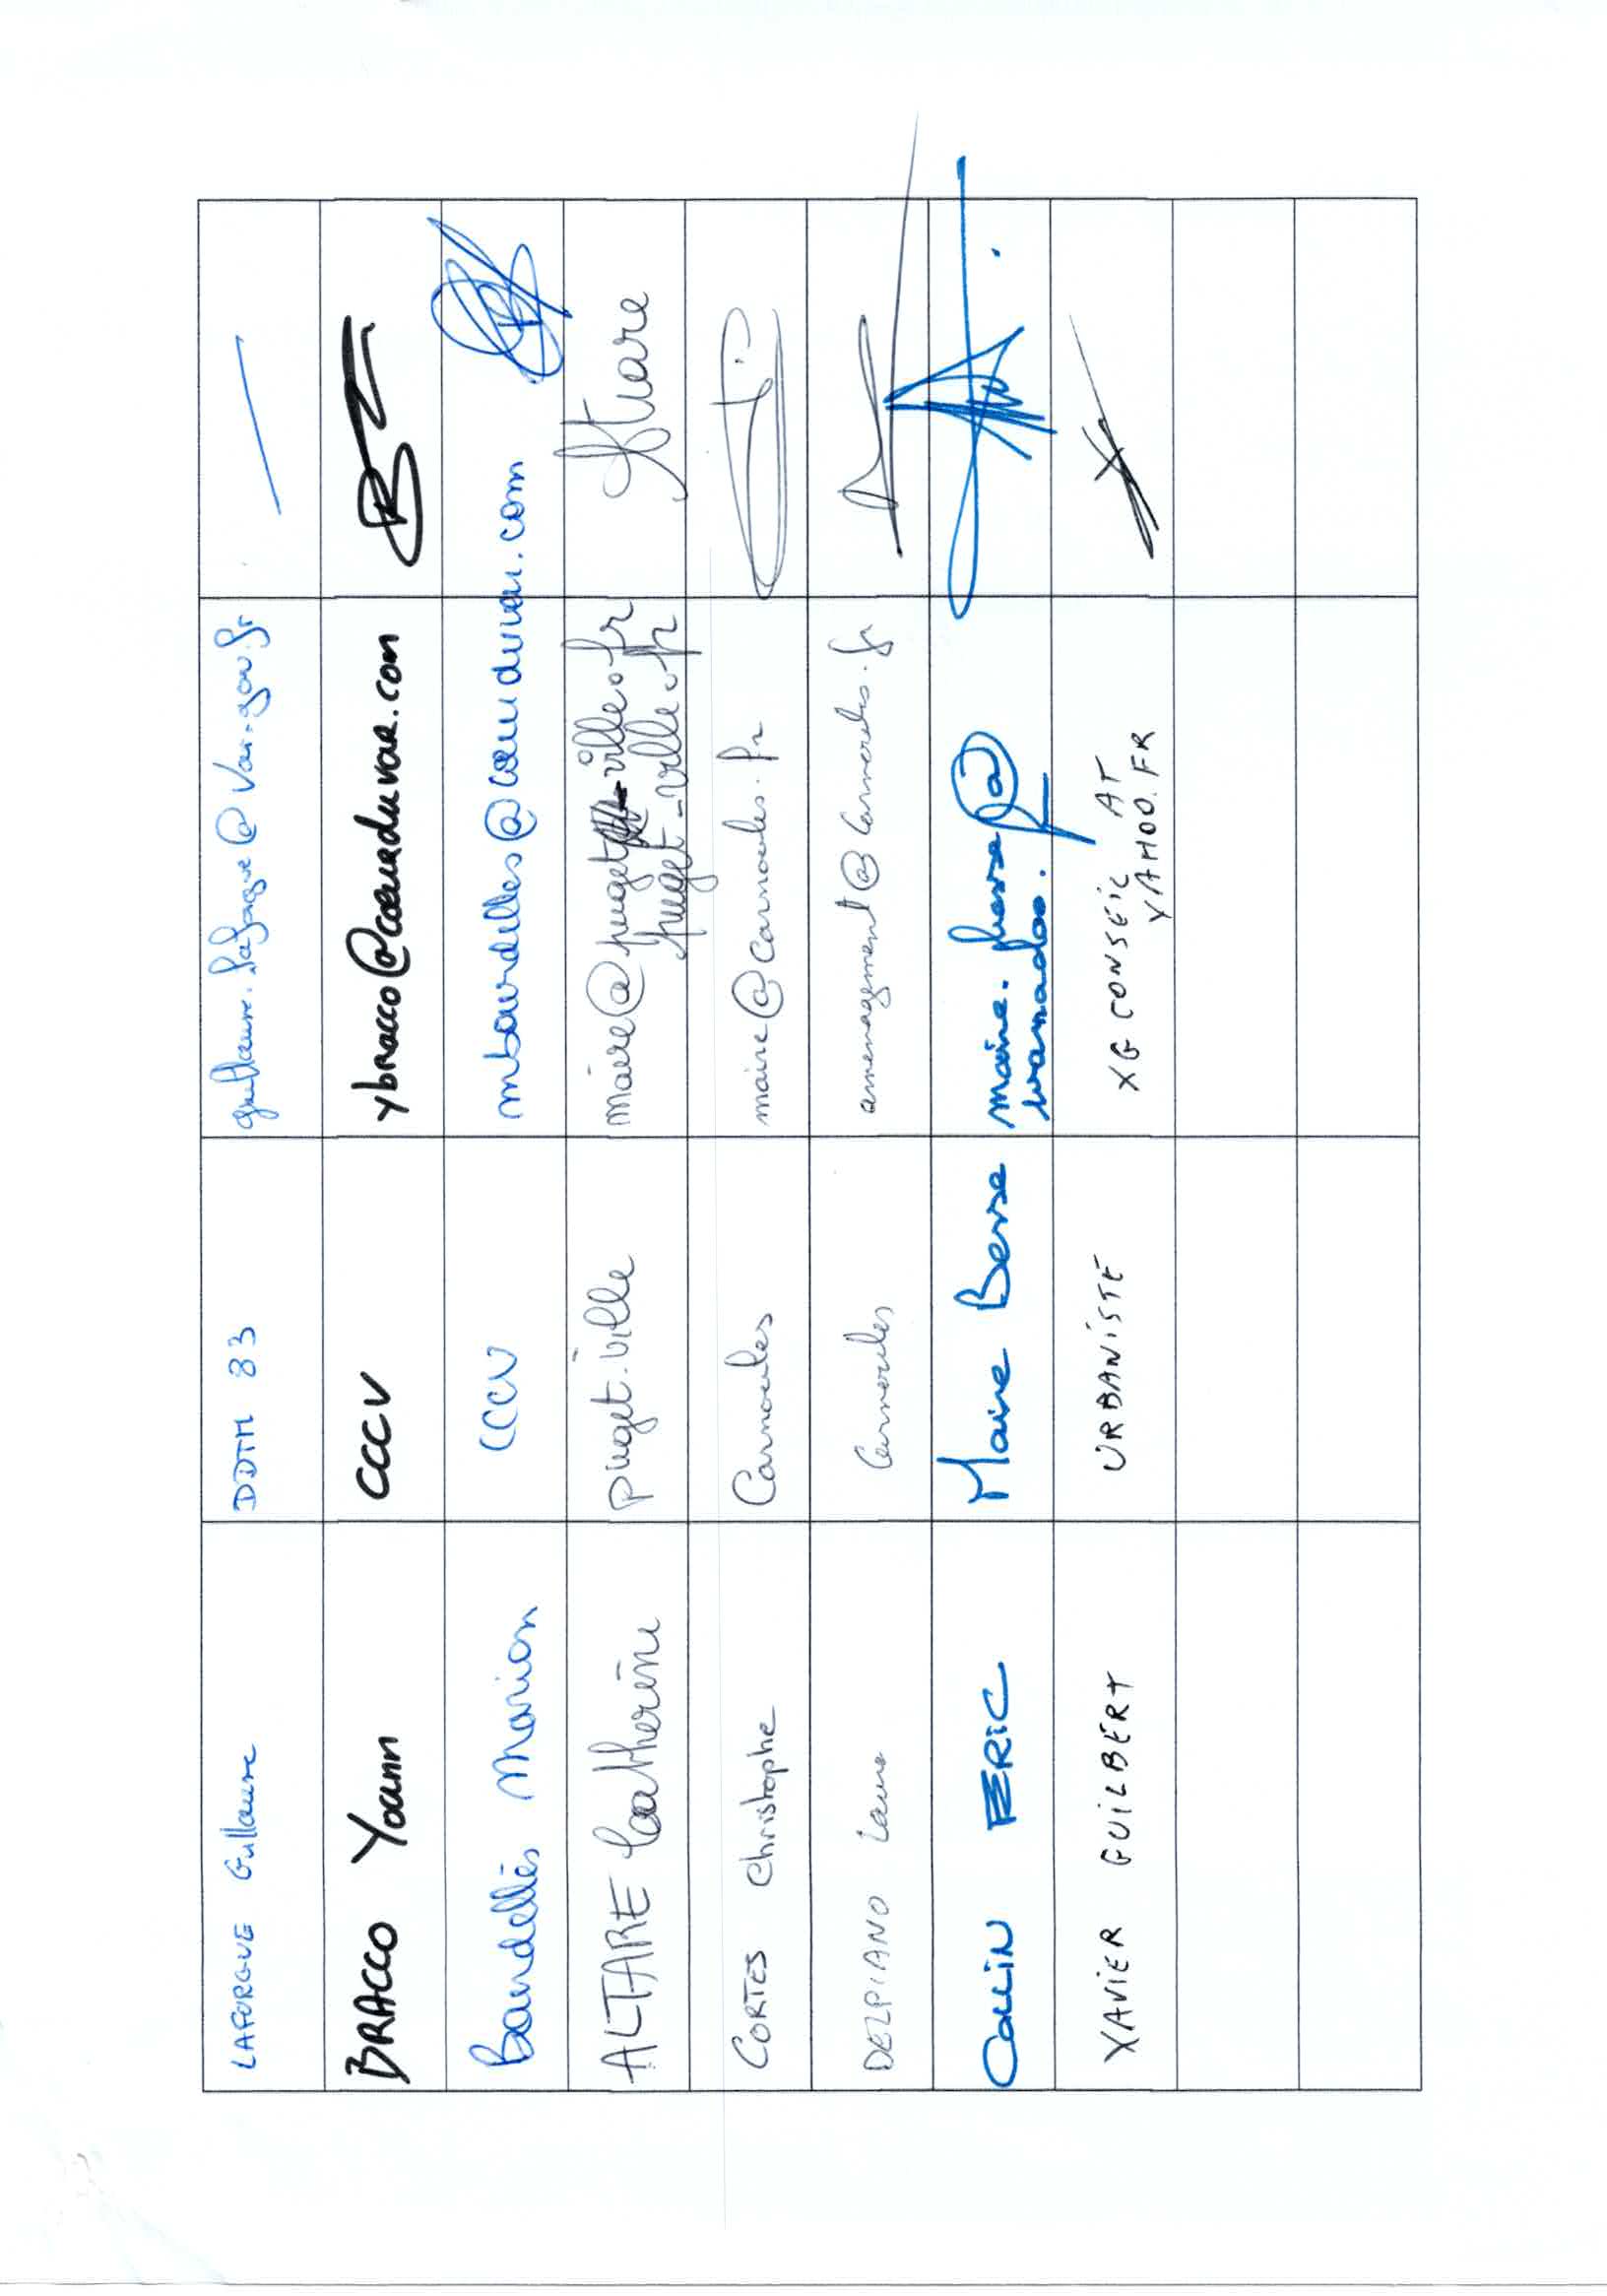 LAFORGUE Guillaume
DDTM 83
guillaume.laforgue@var.gouv.fr
BRACCO Yoann
CCCV
ybracco@coeurduvar.com
Bourdellès Marion
CCCV
mbourdelles@coeurduvar.com
ALTARE Catherine
puget.ville
maire@puget-ville.fr
puget-ville.fr
Altare
CORTES Christophe
Carnoules
maire@carnoules.fr
DELPIANO Laura
Carnoules
amenagement@carnoules.fr
COLLIN ERIC
Maire Besse
maire.besse@
wanadoo.
XAVIER GUILBERT
URBANISTE
XG CONSEIL AT
YAHOO.FR